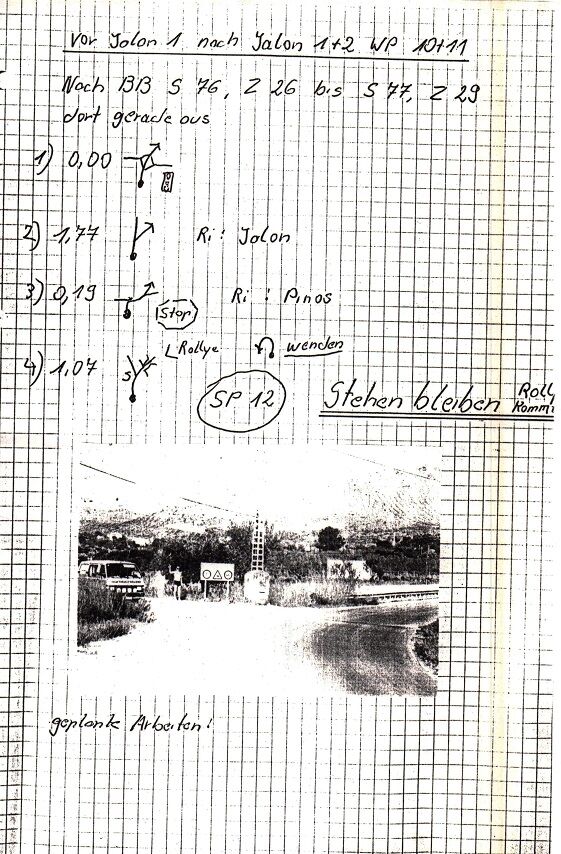 Vor Jalon 1 nach Jalon 1+2 WP 10+11
Nach BB S 76, Z 26 bis S 77, Z 29
dort gerade aus
1) 0,00
2) 1,77 Ri: Jalon
3) 0,19 Stop Ri: Pinos
4) 1,07 S Rallye wenden
SP 12 Stehen bleiben Rolly
Komm
geplante Arbeiten!